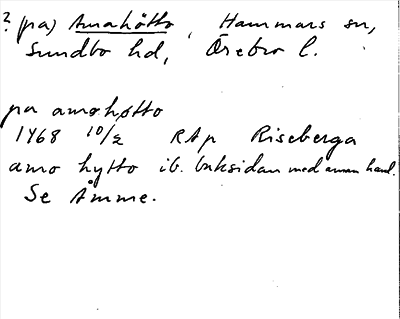 ? (pa) Amahötto, Hammars sn,
Sundbo hd, Örebro l.
pa amohøtto
1468 10/2 RAp Riseberga
amo hytto ib. baksidan med annan hand.
Se Åmme.